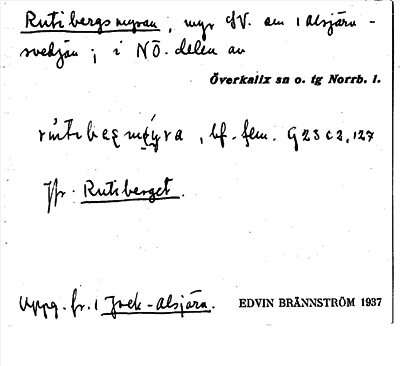 Rutibergsmyran, myr SV. om 1 Alsjärv-
svedjan; i NÖ-delen av
Överkalix sn o. tg Norrb. l.
, bf. fem. G 23 c 2, 127
Jfr. Rutiberget.
Uppg. fr. 1 Jock-Alsjärv.
EDVIN BRÄNNSTRÖM 1937